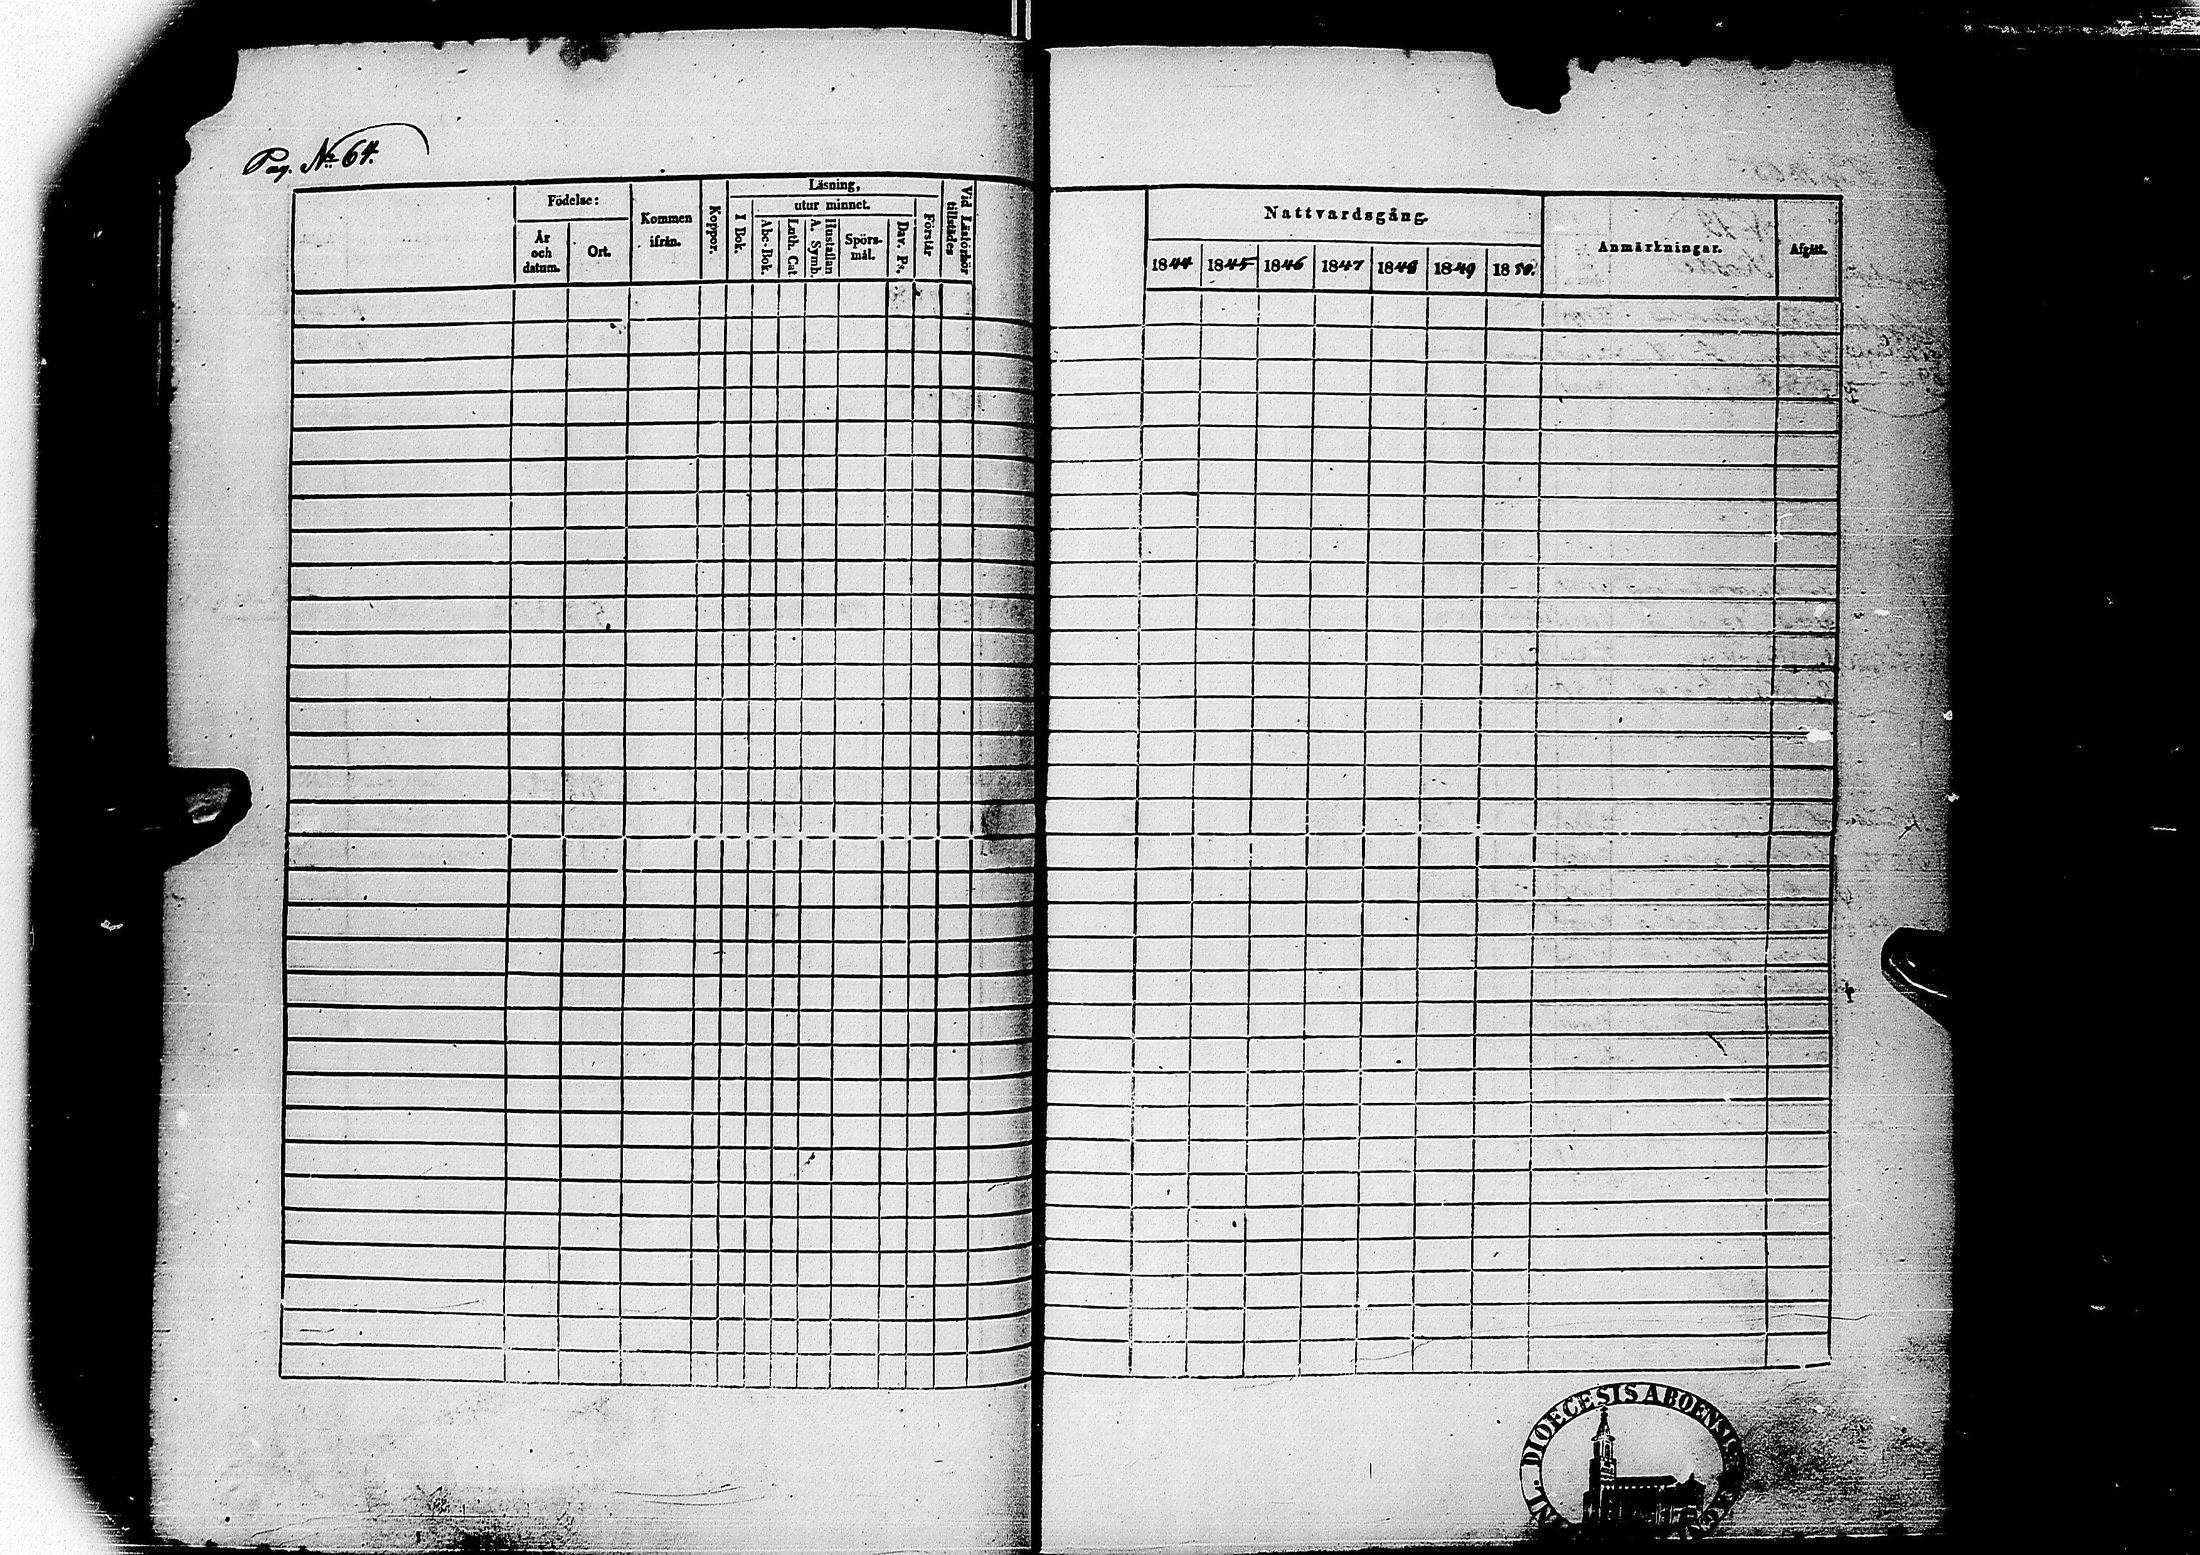 Pag. No 64.
Födelse:
År och datum.
Ort.
Kommen ifrån.
Koppor.
Läsning,
I Bok.
utur minnet.
Abc-Bok.
Luth. Cat.
Hustaflan
A. Symb.
Spörs-
mål.
Dav. Ps.
Förstår
Vid Läsförhör
tillstädes
Nattvardsgång.
1844 1845 1846 1847 1848 1849 1850.
Anmärkningar.
Afgått.
DIOECESIS ABOENSIS